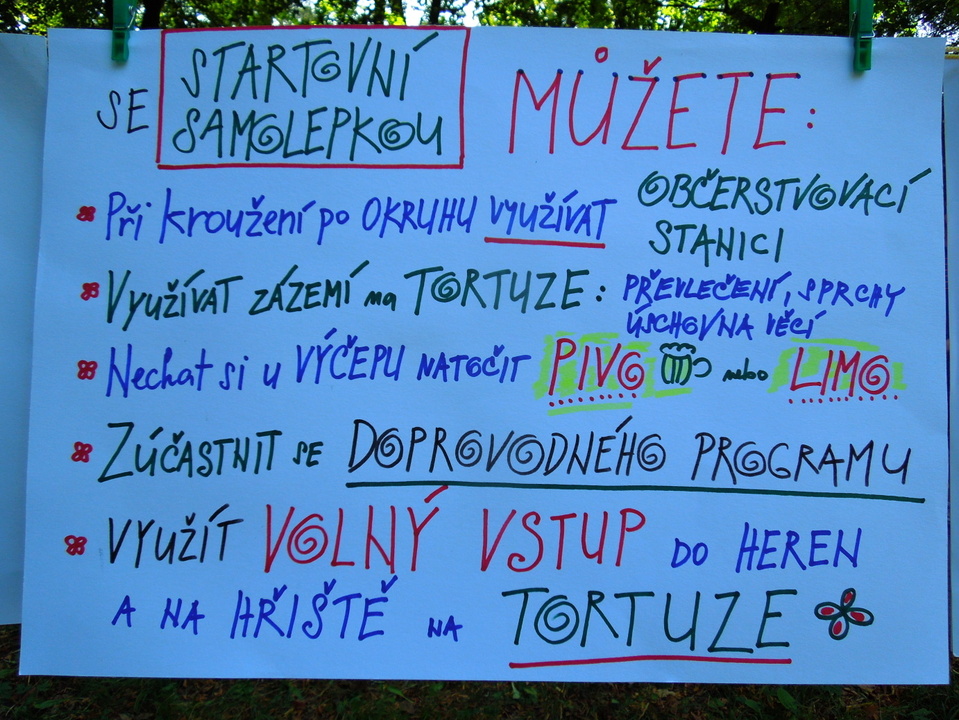 SE STARTOVNÍ SAMOLEPKOU MŮŽETE:
Při kroužení po OKRUHU VYUŽÍVAT OBČERSTVOVACÍ STANICI
VYUŽÍVAT ZÁZEMÍ na TORTUZE: PŘEVLEČENÍ, SPRCHY
ÚSCHOVNA VĚCÍ
Nechat si u VÝČEPU NATOČIT PIVO nebo LIMO
ZÚČASTNIT SE DOPROVODNÉHO PROGRAMU
VYUŽÍT VOLNÝ VSTUP DO HEREN
A NA HŘIŠTĚ NA TORTUZE